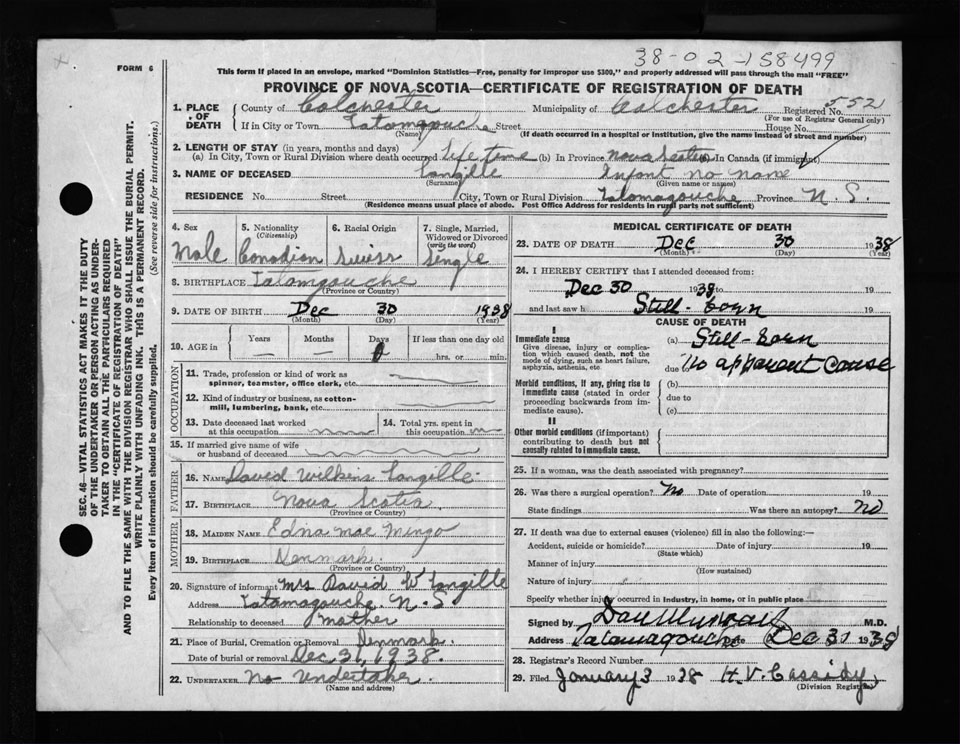 38-02-158499
FORM 6
This form if placed in an envelope, marked "Dominion Statistics—Free, penalty for improper use $300," and properly addressed will pass through the mail "FREE"
PROVINCE OF NOVA SCOTIA—CERTIFICATE OF REGISTRATION OF DEATH
1. PLACE OF DEATH County of Colchester Municipality of Colchester Registered No. 552
(For use of Registrar General only)
If in City or Town Tatamagouche Street House No.
(Name) (If death occurred in a hospital or institution, give the name instead of street and number)
2. LENGTH OF STAY (in years, months and days)
(a) In City, Town or Rural Division where death occurred Life time (b) In Province Nova Scotia (c) In Canada (if immigrant)
3. NAME OF DECEASED Langille Infant no name
(Surname) (Given name or names)
RESIDENCE No. Street City, Town or Rural Division Tatamagouche Province N. S.
(Residence means usual place of abode. Post Office Address for residents in rural parts not sufficient)
4. Sex 5. Nationality 6. Racial Origin 7. Single, Married, Widowed or Divorced
(Citizenship) (write the word)
Male Canadian Swiss Single
8. BIRTHPLACE Tatamgouche
(Province or Country)
9. DATE OF BIRTH Dec 30 1938
(Month) (Day) (Year)
10. AGE in Years Months Days If less than one day old
— — 0 hrs. or min.
OCCUPATION
11. Trade, profession or kind of work as spinner, teamster, office clerk, etc.
12. Kind of industry or business, as cotton-mill, lumbering, bank, etc.
13. Date deceased last worked at this occupation 14. Total yrs. spent in this occupation
15. If married give name of wife or husband of deceased
FATHER
16. NAME David Wilkins Langille
17. BIRTHPLACE Nova Scotia
(Province or Country)
MOTHER
18. MAIDEN NAME Edna Mae Mingo
19. BIRTHPLACE Denmark.
(Province or Country)
20. Signature of informant Mrs David W Langille
Address Tatamagouche. N-S
Relationship to deceased mother
21. Place of Burial, Cremation or Removal Denmark.
Date of burial or removal Dec 31, 1938.
22. UNDERTAKER No Undertaker
(Name and address)
MEDICAL CERTIFICATE OF DEATH
23. DATE OF DEATH Dec 30 1938
(Month) (Day) (Year)
24. I HEREBY CERTIFY that I attended deceased from:
Dec 30 1938 to 19
and last saw h Still-born 19
CAUSE OF DEATH
I
Immediate cause (a) Still-born
Give disease, injury or complication which caused death, not the mode of dying, such as heart failure, asphyxia, asthenia, etc.
due to No apparent cause
Morbid conditions, if any, giving rise to immediate cause (stated in order proceeding backwards from immediate cause).
(b)
due to
(c)
II
Other morbid conditions (if important) contributing to death but not causally related to immediate cause.
25. If a woman, was the death associated with pregnancy?
26. Was there a surgical operation? No Date of operation 19
State findings Was there an autopsy? No
27. If death was due to external causes (violence) fill in also the following:—
Accident, suicide or homicide? Date of injury 19
(State which)
Manner of injury
(How sustained)
Nature of injury
Specify whether injury occurred in industry, in home, or in public place
Signed by Dan Murray M.D.
Address Tatamagouche Date Dec 31 1938
28. Registrar's Record Number
29. Filed January 3 1938 H. V. Cassidy
(Division Registrar)
SEC. 46—VITAL STATISTICS ACT MAKES IT THE DUTY
OF THE UNDERTAKER OR PERSON ACTING AS UNDER-
TAKER TO OBTAIN ALL THE PARTICULARS REQUIRED
IN THE "CERTIFICATE OF REGISTRATION OF DEATH"
AND TO FILE THE SAME WITH THE DIVISION REGISTRAR WHO SHALL ISSUE THE BURIAL PERMIT.
WRITE PLAINLY WITH UNFADING INK. THIS IS A PERMANENT RECORD.
Every item of information should be carefully supplied. (See reverse side for instructions.)